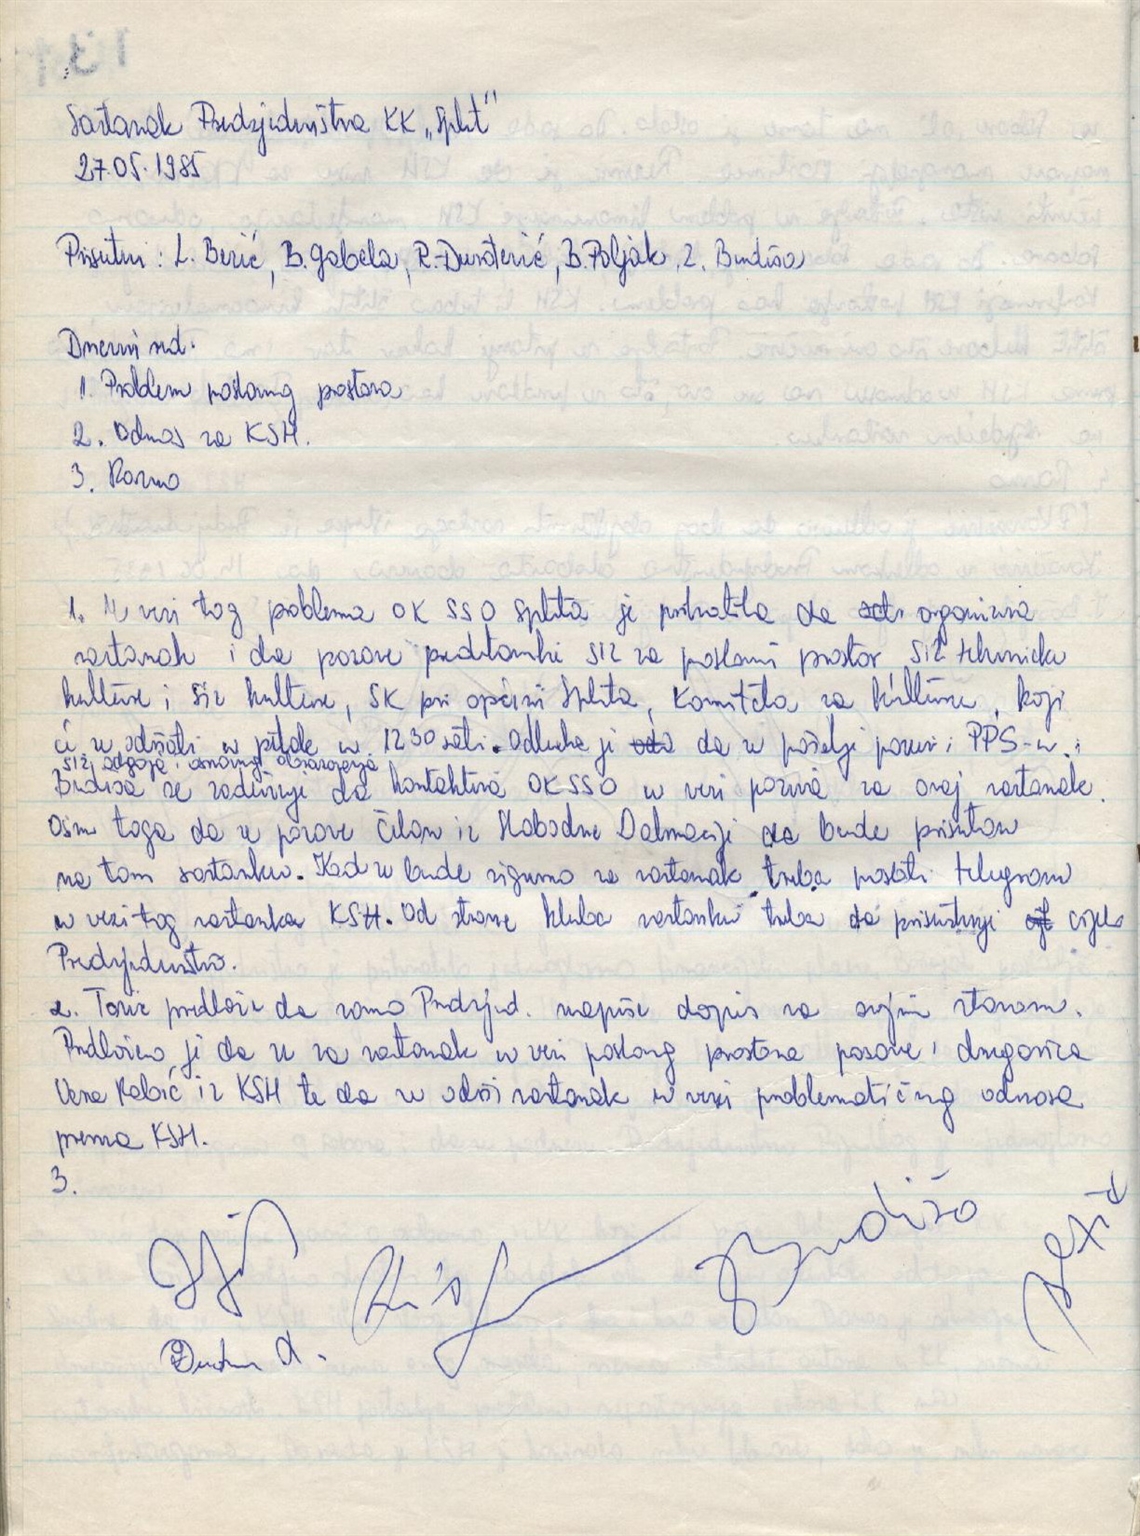 Sastanak Predsjedništva KK „Split"
27.05.1985
Prisutni: L. Berić, B. Gabela, R. Duvančić, B. Poljak, Z. Bundiša
Dnevni red.
1. Problem poslovnog prostora
2. Odnos sa KSH.
3. Razno
1. U vezi tog problema OK SSO Splita je prihvatila da organizira
sastanak i da pozove predstavnike SIZ za poslovni prostor SIZ tehničke
kulture i SIZ kulture, SK pri općini Splita, Komiteta za kulturu, koji
će se održati u petak u 12 30 sati. Odluka je da se pošalje poziv i PPS-u i
SIZ odgoja i osnovnog obrazovanja
Bundiša se zadužuje da kontaktira OK SSO u vezi poziva za ovaj sastanak.
Osim toga da se pozove član iz Slobodne Dalmacije da bude prisutan
na tom sastanku. Kad se bude sigurno za sastanak treba poslati telegram
u vezi tog sastanka KSH. Od strane kluba sastanku treba da prisustvuje cijelo
Predsjedništvo.
2. Tonić predlaže da samo Predsjed. napiše dopis sa svojim stavom.
Predloženo je da se za sastanak u vezi poslovnog prostora pozove i drugarica
Vesna Kabić iz KSH te da se održi sastanak u vezi problematičnog odnosa
prema KSH.
3.
Bundiša